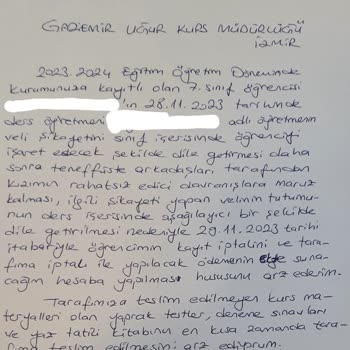 GAZİEMİR UĞUR KURS MÜDÜRLÜĞÜ
İZMİR
2023.2024 Eğitim Öğretim Döneminde
Kurumunuza kayıtlı olan 7. sınıf öğrencisi
ın 28.11.2023 tarihinde
ders öğretmeni adlı öğretmenin
veli şikayetini sınıf içerisinde öğrenciyi
işaret edecek şekilde dile getirmesi daha
sonra teneffüste arkadaşları tarafından
kızımın rahatsız edici davranışlara maruz
kalması, ilgili şikayeti yapan velinin tutumu-
nun ders içerisinde aşağılayıcı bir şekilde
dile getirilmesi nedeniyle 29.11.2023 tarihi
itabariyle öğrencimin kayıt iptalini ve tara-
fıma iptali ile yapılacak ödemenin suna-
cağım hesaba yapılması hususunu arz ederim.
Tarafımıza teslim edilmeyen kurs ma-
teryalleri olan yaprak testler, deneme sınavları
ve yaz tatili kitabının en kısa zamanda tara-
fıma teslim edilmesini arz ediyorum.